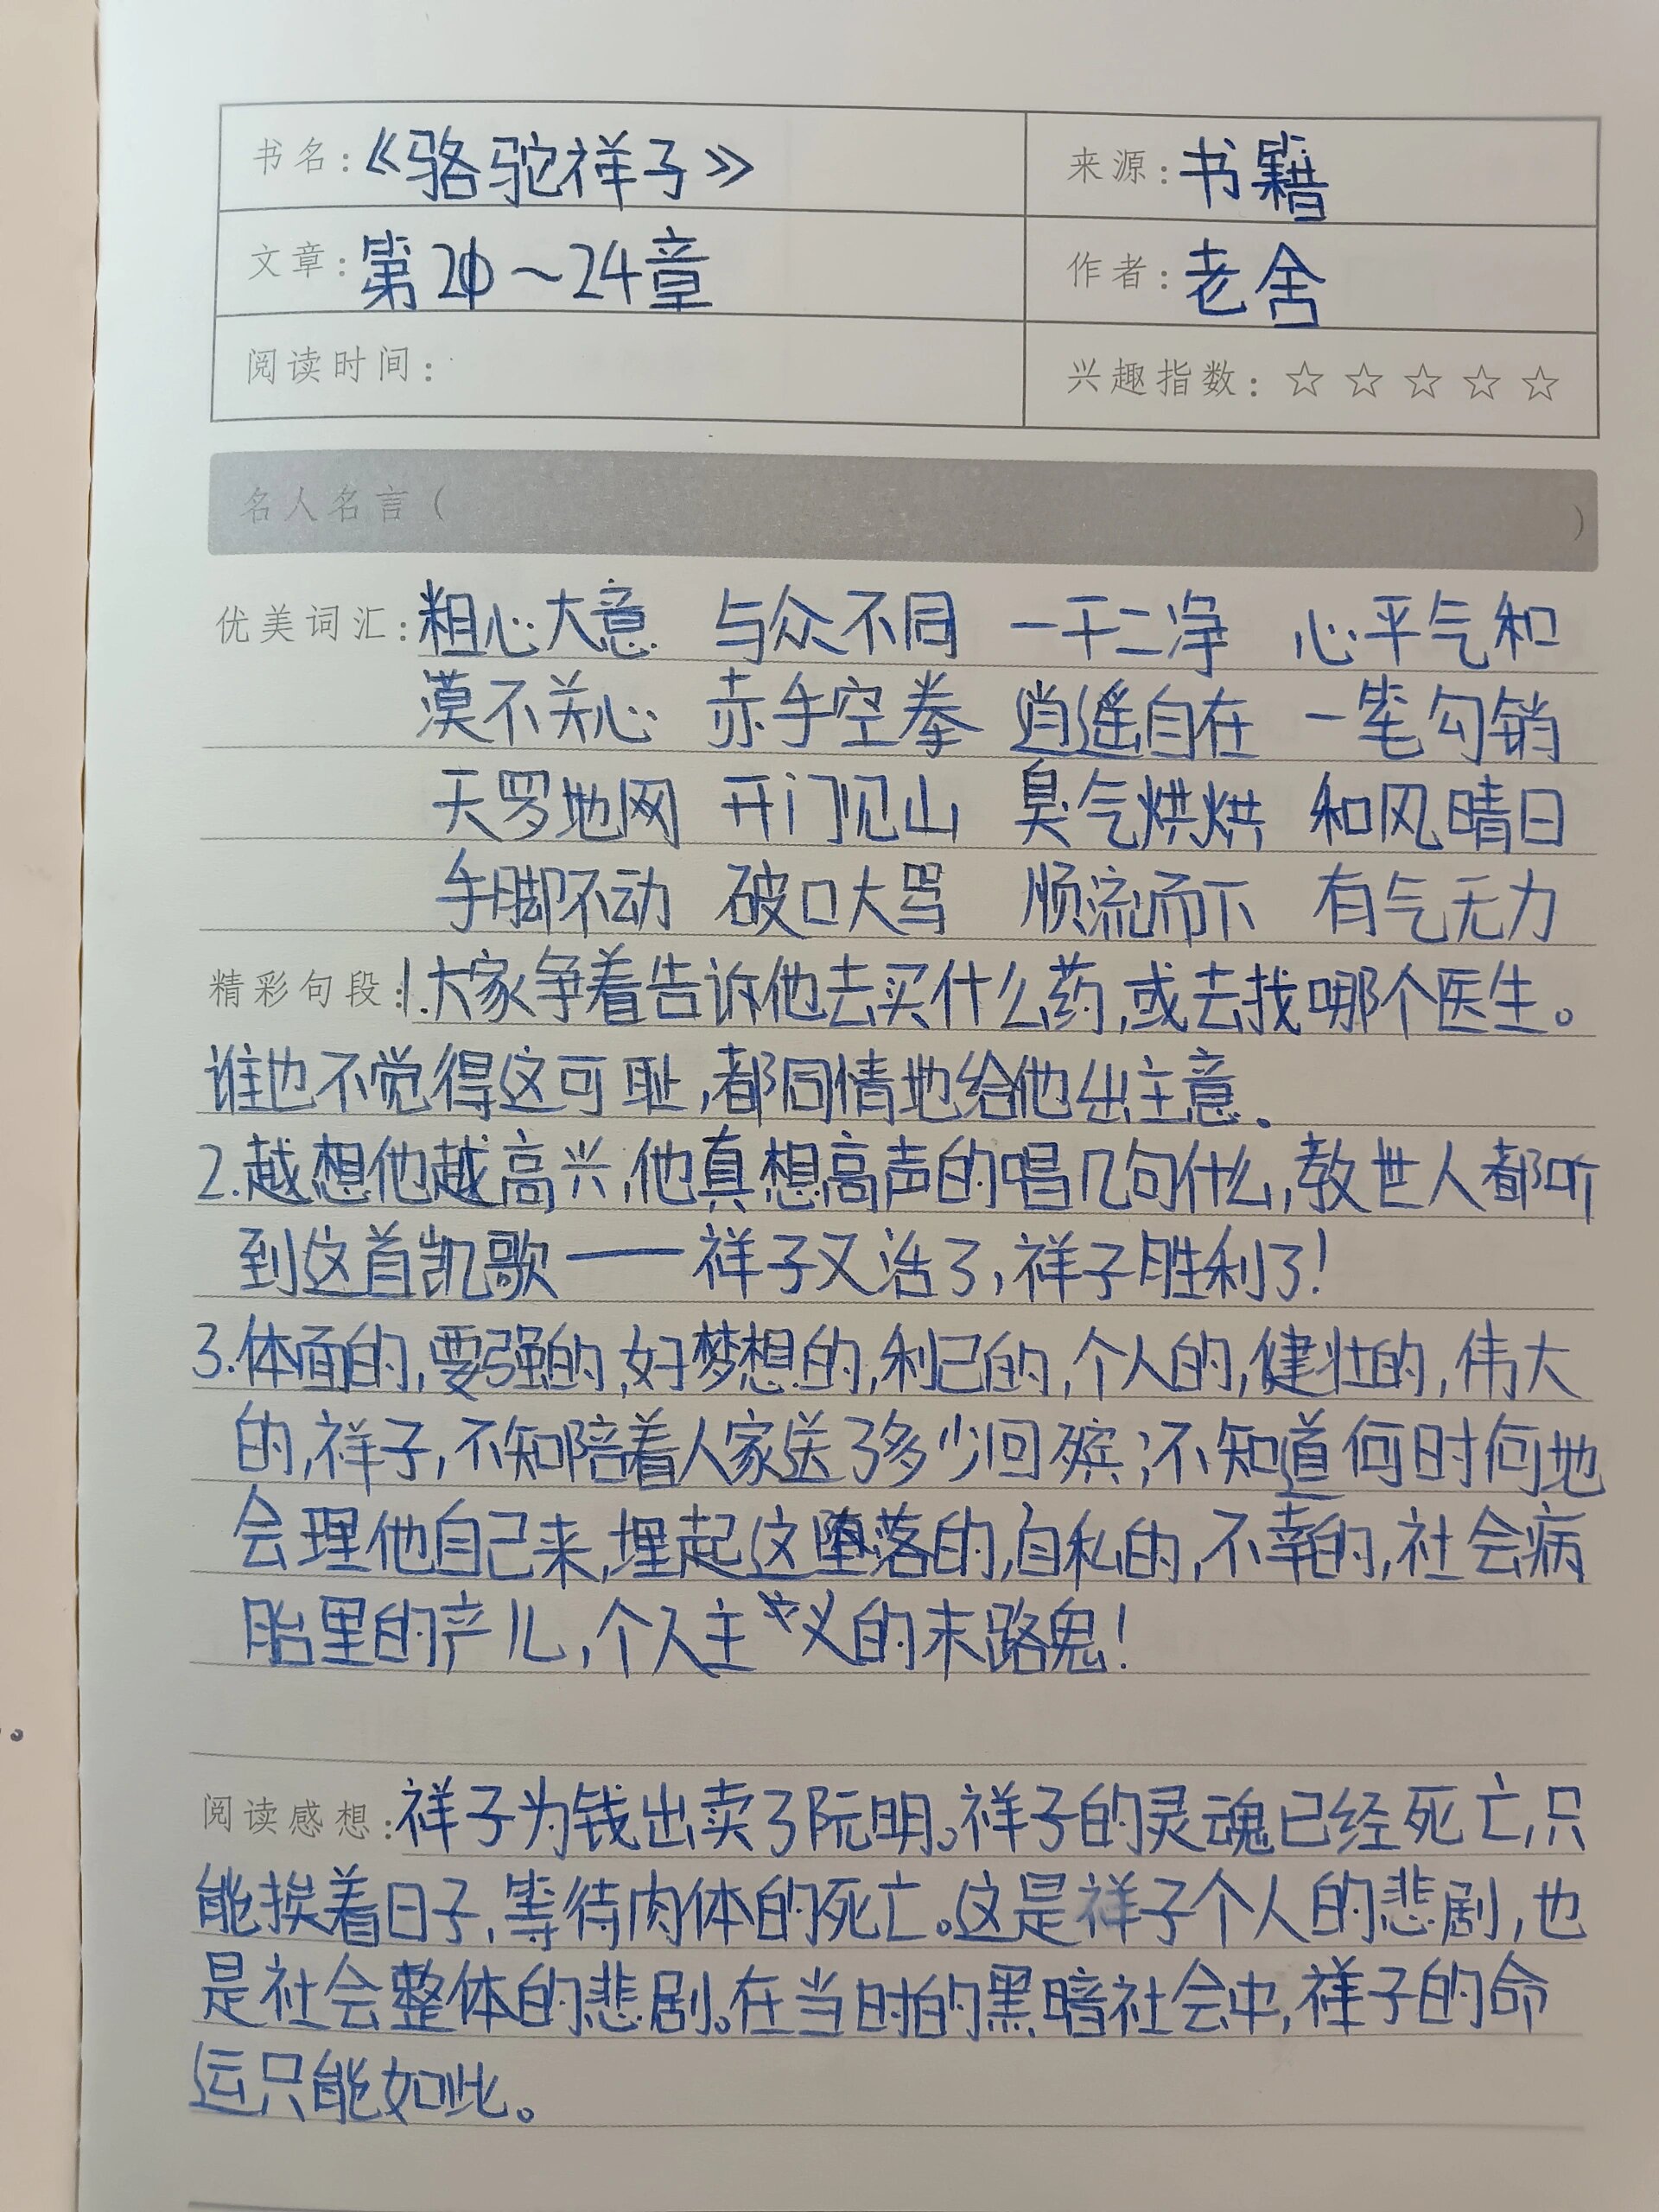 书名:《骆驼祥子》 来源:书籍
文章:第20～24章 作者:老舍
阅读时间: 兴趣指数:☆☆☆☆☆
名人名言( )
优美词汇:粗心大意 与众不同 一干二净 心平气和
漠不关心 赤手空拳 逍遥自在 一笔勾销
天罗地网 开门见山 臭气烘烘 和风晴日
手脚不动 破口大骂 顺流而下 有气无力
精彩句段:1.大家争着告诉他去买什么药,或去找哪个医生。
谁也不觉得这可耻,都同情地给他出主意。
2.越想他越高兴,他真想高声的唱几句什么,教世人都听
到这首凯歌——祥子又活了,祥子胜利了!
3.体面的,要强的,好梦想的,利己的,个人的,健壮的,伟大
的,祥子,不知陪着人家送了多少回殡;不知道何时何地
会理他自己来,埋起这堕落的,自私的,不幸的,社会病
胎里的产儿,个人主义的末路鬼!
。
阅读感想:祥子为钱出卖了阮明。祥子的灵魂已经死亡,只
能挨着日子,等待肉体的死亡。这是祥子个人的悲剧,也
是社会整体的悲剧。在当时的黑暗社会中,祥子的命
运只能如此。